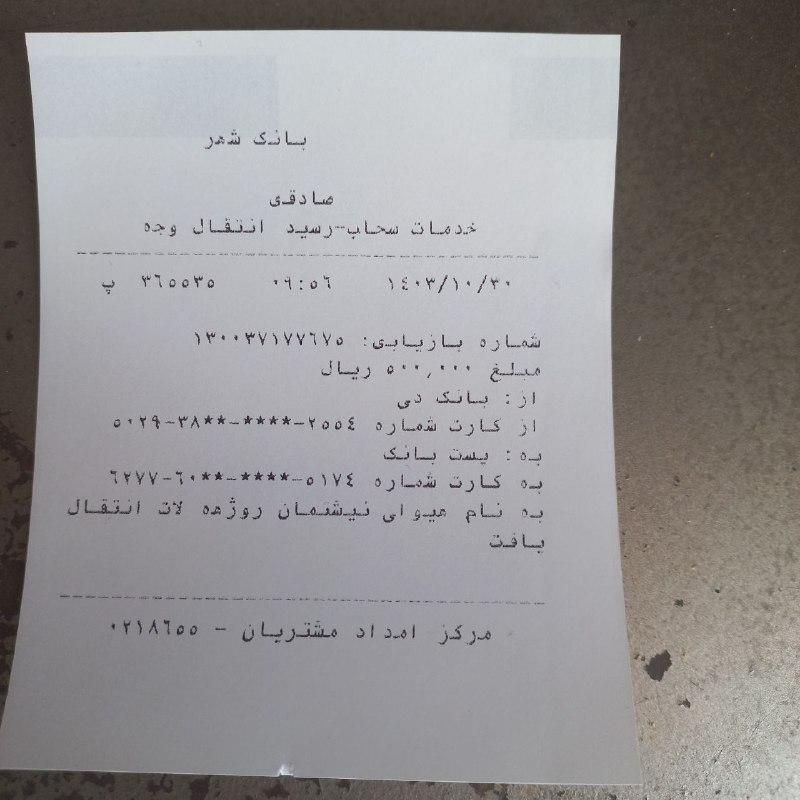 بانک شهر
صادقی
خدمات سحاب-رسید انتقال وجه
۱۴۰۳/۱۰/۳۰ ۰۹:۵۶ ۳۶۵۵۳۵ پ
شماره بازیابی: ۱۳۰۰۳۷۱۷۷۶۷۵
مبلغ ۵۰۰,۰۰۰ ریال
از: بانک دی
از کارت شماره ۵۰۲۹-۳۸**-****-۲۵۵۴
به: پست بانک
به کارت شماره ۶۲۷۷-۶۰**-****-۵۱۷۴
به نام هیوای نیشتمان روژهه لات انتقال
یافت
مرکز امداد مشتریان - ۰۲۱۸۶۵۵